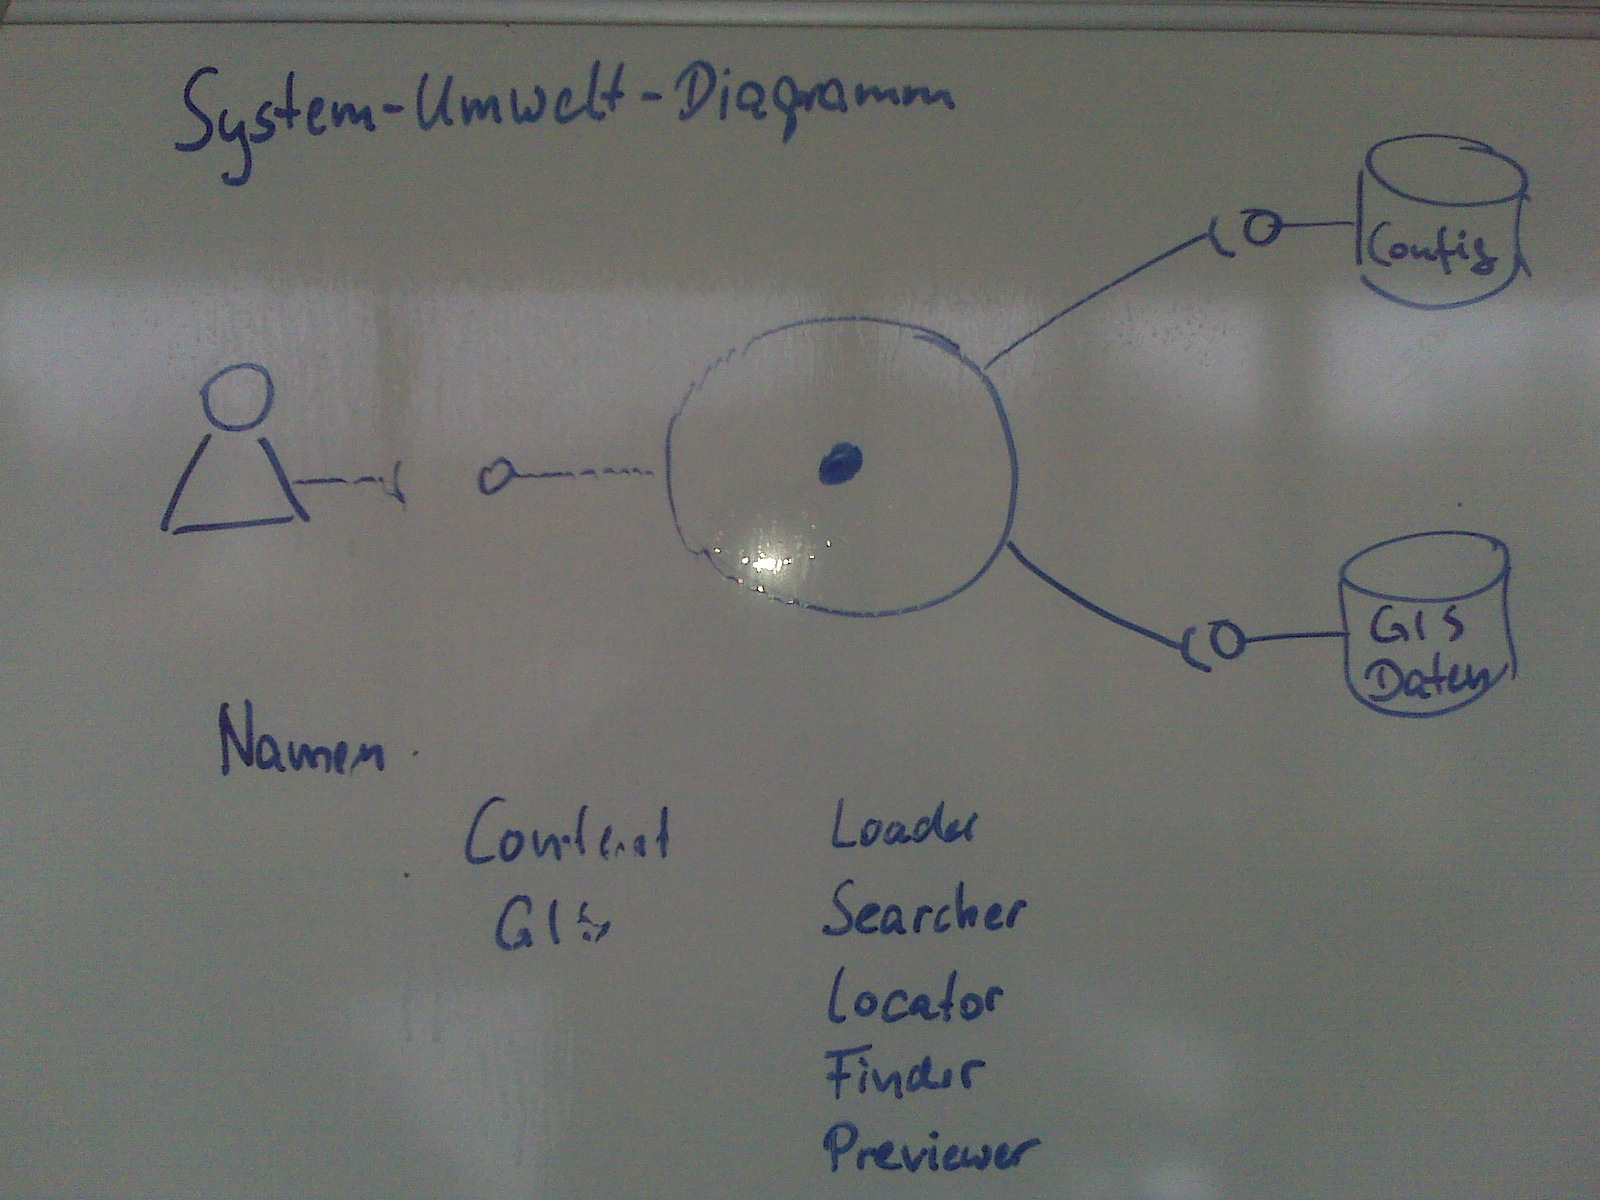 System-Umwelt-Diagramm
Config
GIS
Daten
Namen
Content Loader
GIS Searcher
Locator
Finder
Previewer